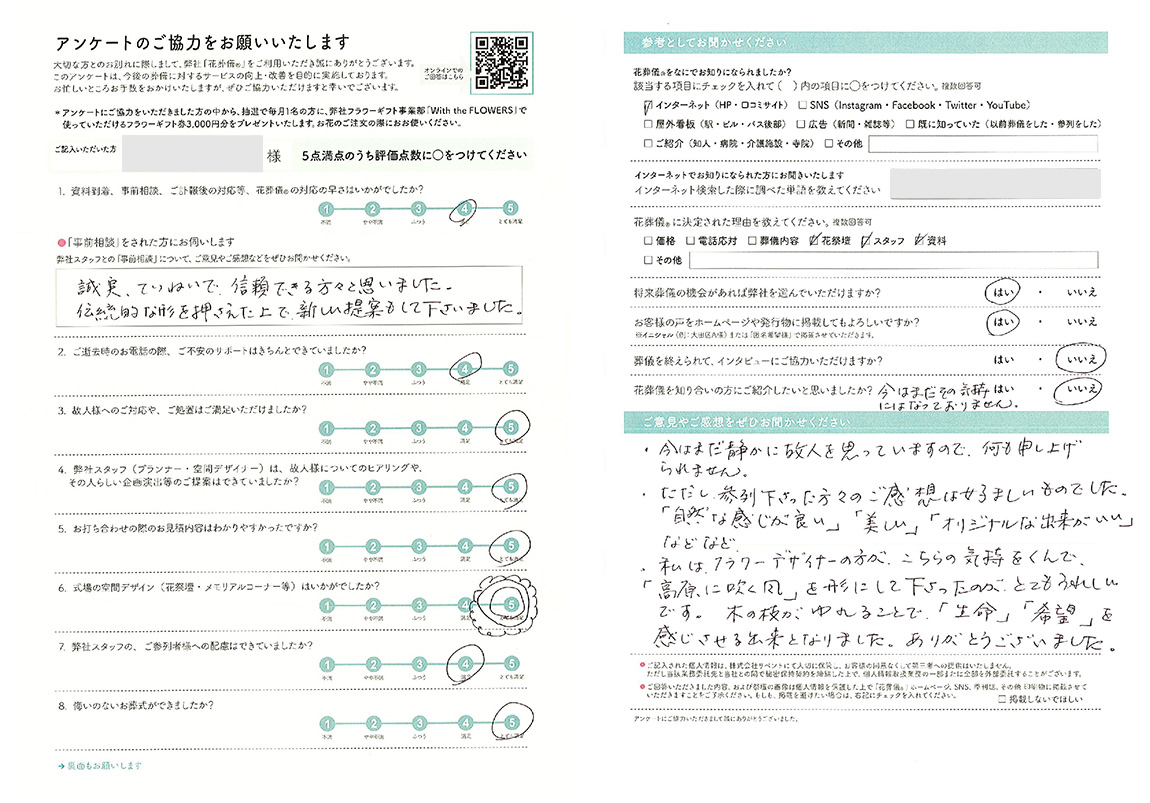 アンケートのご協力をお願いいたします
大切な方とのお別れに際しまして、弊社「花葬儀®」をご利用いただき誠にありがとうございます。
このアンケートは、今後の葬儀に対するサービスの向上・改善を目的に実施しております。
お忙しいところお手数をおかけいたしますが、ぜひご協力いただけますと幸いでございます。
オンラインでの
ご回答はこちら
＊アンケートにご協力をいただきました方の中から、抽選で毎月1名の方に、弊社フラワーギフト事業部「With the FLOWERS」で
使っていただけるフラワーギフト券3,000円分をプレゼントいたします。お花のご注文の際にお使いください。
ご記入いただいた方 様 5点満点のうち評価点数に○をつけてください
1. 資料到着、事前相談、ご訃報後の対応等、花葬儀®の対応の早さはいかがでしたか?
1 2 3 4 5
不満 やや不満 ふつう 満足 とても満足
●「事前相談」をされた方にお伺いします
弊社スタッフとの「事前相談」について、ご意見やご感想などをぜひお聞かせください。
誠実、ていねいで、信頼できる方々と思いました。
伝統的な形を押さえた上で、新しい提案もして下さいました。
2. ご逝去時のお電話の際、ご不安のサポートはきちんとできていましたか?
1 2 3 4 5
不満 やや不満 ふつう 満足 とても満足
3. 故人様へのご対応や、ご処置はご満足いただけましたか?
1 2 3 4 5
不満 やや不満 ふつう 満足 とても満足
4. 弊社スタッフ（プランナー・空間デザイナー）は、故人様についてのヒアリングや、
その人らしい企画演出等のご提案はできていましたか?
1 2 3 4 5
不満 やや不満 ふつう 満足 とても満足
5. お打ち合わせの際のお見積内容はわかりやすかったですか?
1 2 3 4 5
不満 やや不満 ふつう 満足 とても満足
6. 式場の空間デザイン（花祭壇・メモリアルコーナー等）はいかがでしたか?
1 2 3 4 5
不満 やや不満 ふつう 満足 とても満足
7. 弊社スタッフの、ご参列者様への配慮はできていましたか?
1 2 3 4 5
不満 やや不満 ふつう 満足 とても満足
8. 悔いのないお葬式ができましたか?
1 2 3 4 5
不満 やや不満 ふつう 満足 とても満足
→裏面もお願いします
参考としてお聞かせください
花葬儀®をなにでお知りになられましたか?
該当する項目にチェックを入れて（ ）内の項目に○をつけてください。複数回答可
☑インターネット（HP・口コミサイト） □SNS（Instagram・Facebook・Twitter・YouTube）
□屋外看板（駅・ビル・バス後部） □広告（新聞・雑誌等） □既に知っていた（以前葬儀をした・参列をした）
□ご紹介（知人・病院・介護施設・寺院） □その他
インターネットでお知りになられた方にお聞きいたします
インターネット検索した際に調べた単語を教えてください
花葬儀®に決定された理由を教えてください。複数回答可
□価格 □電話応対 □葬儀内容 ☑花祭壇 ☑スタッフ ☑資料
□その他
将来葬儀の機会があれば弊社を選んでいただけますか? はい ・ いいえ
お客様の声をホームページや発行物に掲載してもよろしいですか? はい ・ いいえ
※イニシャル（例：大田区A様）または「匿名希望様」で掲載させていただきます。
葬儀を終えられて、インタビューにご協力いただけますか? はい ・ いいえ
花葬儀を知り合いの方にご紹介したいと思いましたか? 今はまだその気持 はい ・ いいえ
にはなっておりません。
ご意見やご感想をぜひお聞かせください
・今はまだ静かに故人を思っていますので、何も申し上げ
られません。
・ただし参列下さった方々のご感想は好ましいものでした。
「自然な感じが良い」「美しい」「オリジナルな出来がいい」
などなど
・私は、フラワーデザイナーの方が、こちらの気持をくんで、
「高原に吹く風」を形にして下さったのが、とてもうれしい
です。木の枝が、ゆれることで、「生命」「希望」を
感じさせる出来となりました。ありがとうございました。
●ご記入された個人情報は、株式会社サペントにて大切に保管し、お客様の同意なくして第三者への提供はいたしません。
ただし当該業務委託先と当社との間で秘密保持契約を締結した上で、個人情報取扱業務の一部または全部を外部委託することがございます。
●ご回答いただきました内容、および祭壇の画像は個人情報を保護した上で「花葬儀®」ホームページ、SNS、季刊誌、その他印刷物に掲載させて
いただきますことをご了承ください。もしも、掲載を避けたい場合は、右記にチェックを入れてください。 □掲載しないでほしい
アンケートにご協力いただきまして誠にありがとうございました。